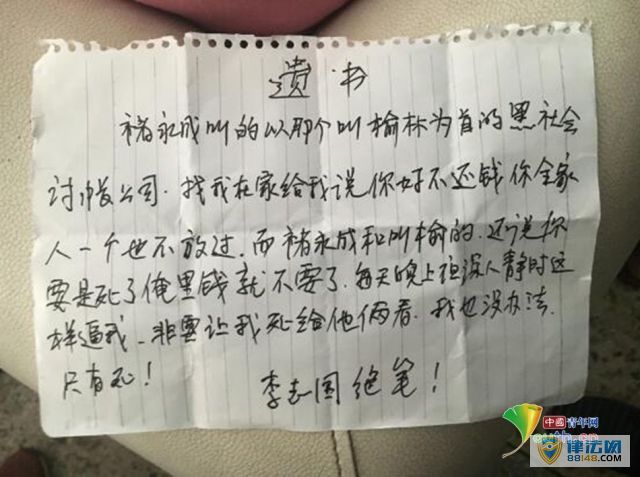 遗书
褚永成叫的以那个叫榆林为首的黑社会
讨帐公司.找我在家给我说你好不还钱你全家
人一个也不放过.而褚永成和叫榆的.还说你
要是死了俺里钱就不要了.每天晚上夜深人静时这
样逼我.非要让我死给他俩看.我也没办法.
只有死！
李志国绝笔！
中国青年网
youth.cn
律法网
88148.com